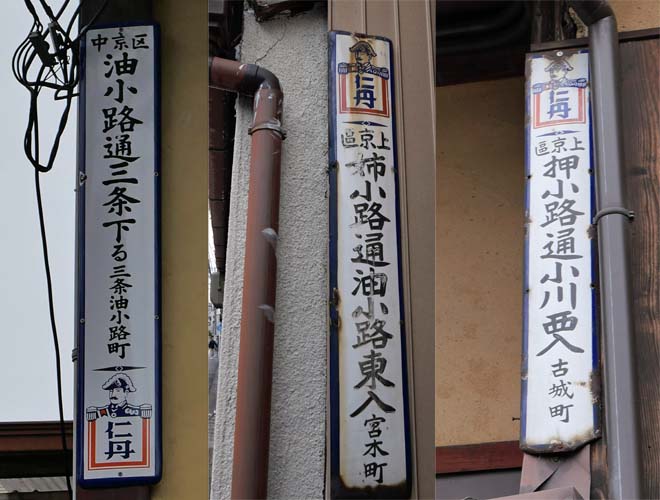 中京区
油小路通三条下る
三条油小路町
仁丹
仁丹
上京區
姉小路通油小路東入
宮木町
仁丹
上京區
押小路通小川西入
古城町